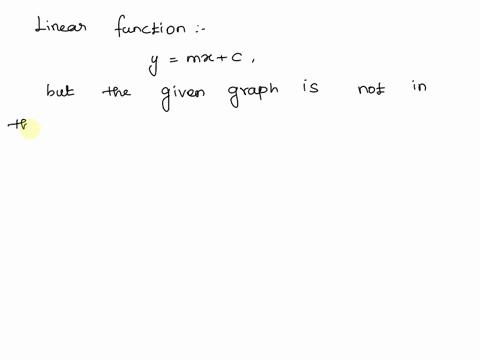 Linear function :-
y = mx + c ,
but the given graph is not in